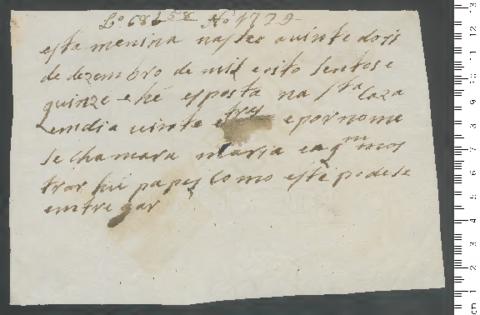 Lº 68 f 58 Nº 1729
esta menina nasseo a vinte dois
de dezembro de mil e oito sentos e
quinze e hé esposta na Sta Caza
em dia vinte e tres e por nome
se chamara maria e a qm mos
trar hű papel como este podese
emtregar